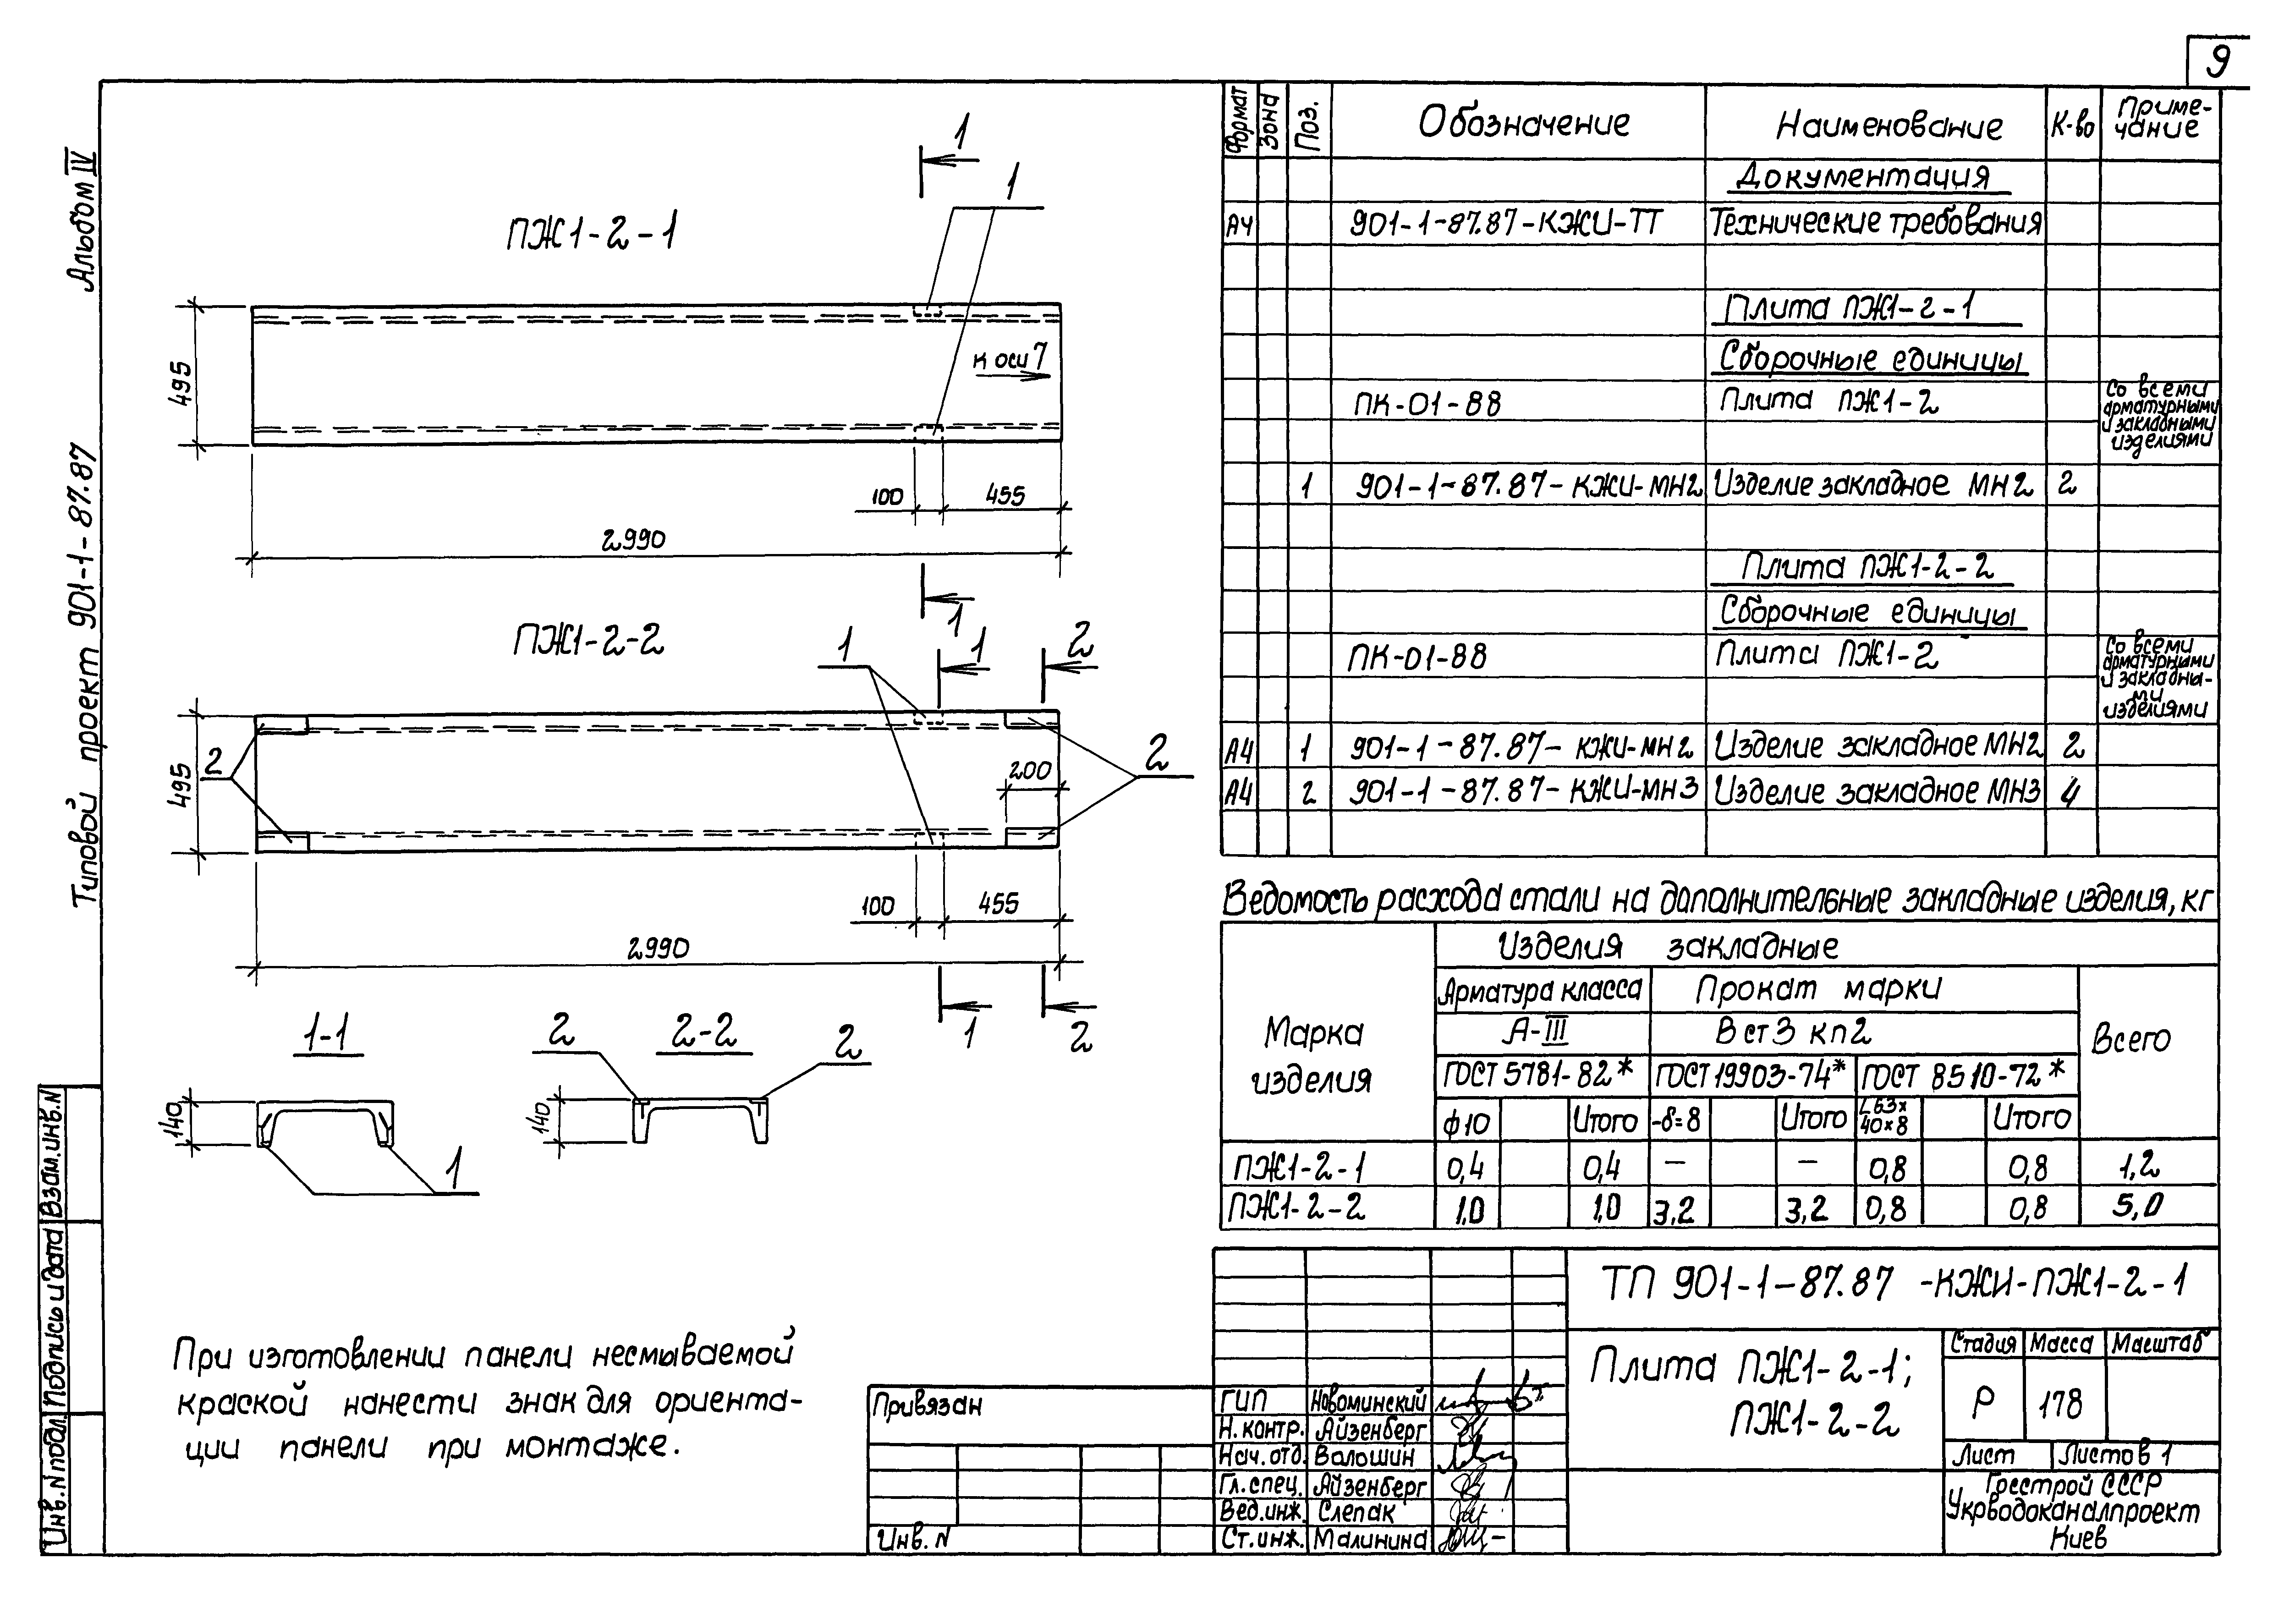 9
Альбом IV
Типовой проект 901-1-87.87
Взам.инв.N
Подпись и дата
Инв.N подл.
ПЖ1-2-1
1
1
495
к оси 7
100
455
2990
1
ПЖ1-2-2
1
1
2
495
2
200
2
100
455
2990
1
2
1-1
140
1
2-2
2
2
140
При изготовлении панели несмываемой
краской нанести знак для ориента-
ции панели при монтаже.
Формат Зона Поз. Обозначение Наименование К-во Приме-
чание
Документация
А4 901-1-87.87-КЖИ-ТТ Технические требования
Плита ПЖ1-2-1
Сборочные единицы
ПК-01-88 Плита ПЖ1-2 Со всеми
арматурными
и закладными
изделиями
1 901-1-87.87-КЖИ-МН2 Изделие закладное МН2 2
Плита ПЖ1-2-2
Сборочные единицы
ПК-01-88 Плита ПЖ1-2 Со всеми
арматурными
и закладны-
ми
изделиями
А4 1 901-1-87.87-КЖИ-МН2 Изделие закладное МН2 2
А4 2 901-1-87.87-КЖИ-МН3 Изделие закладное МН3 4
Ведомость расхода стали на дополнительные закладные изделия, кг
Марка
изделия
Изделия закладные
Арматура класса Прокат марки
А-III Вст3 кп2
Всего
ГОСТ 5781-82* ГОСТ 19903-74* ГОСТ 8510-72*
ф10 Итого -δ=8 Итого L63х
40х8 Итого
ПЖ1-2-1 0,4 0,4 — — 0,8 0,8 1,2
ПЖ1-2-2 1,0 1,0 3,2 3,2 0,8 0,8 5,0
ТП 901-1-87.87 -КЖИ-ПЖ1-2-1
Плита ПЖ1-2-1;
ПЖ1-2-2
Стадия Масса Масштаб
Р 178
Лист Листов 1
Госстрой СССР
Укрводоканалпроект
Киев
Привязан
Инв. N
ГИП Новоминский
Н.контр. Айзенберг
Нач.отд. Волошин
Гл.спец. Айзенберг
Вед.инж. Слепак
Ст.инж. Малинина